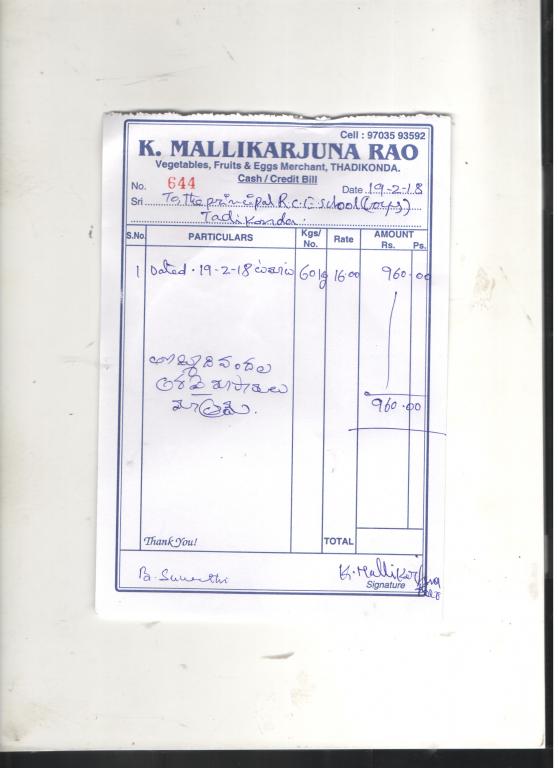 Cell : 97035 93592
K. MALLIKARJUNA RAO
Vegetables, Fruits & Eggs Merchant, THADIKONDA.
Cash / Credit Bill
No. 644 Date 19-2-18
Sri To, the principal R.C.E. School (
Tadikonda.
S.No. PARTICULARS Kgs/ No. Rate AMOUNT Rs. Ps.
1 Dated. 19-2-18 60 kg 16.00 960.00
960.00
Thank You! TOTAL
K. Mallikarjuna Rao
Signature